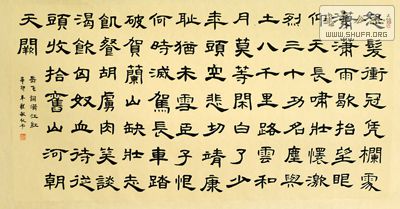 怒髮衝冠凭欄處
瀟瀟雨歇抬望眼
仰天長嘯壯懷激
烈三十功名塵與
土八千里路雲和
月莫等閑白了少
年頭空悲切靖康
恥猶未雪臣子恨
何時滅駕長車踏
破賀蘭山缺壯志
飢餐胡虜肉笑談
渴飲匈奴血待從
頭收拾舊山河朝
天闕
岳飛詞滿江紅
辛卯年
WWW.SHUFA.ORG